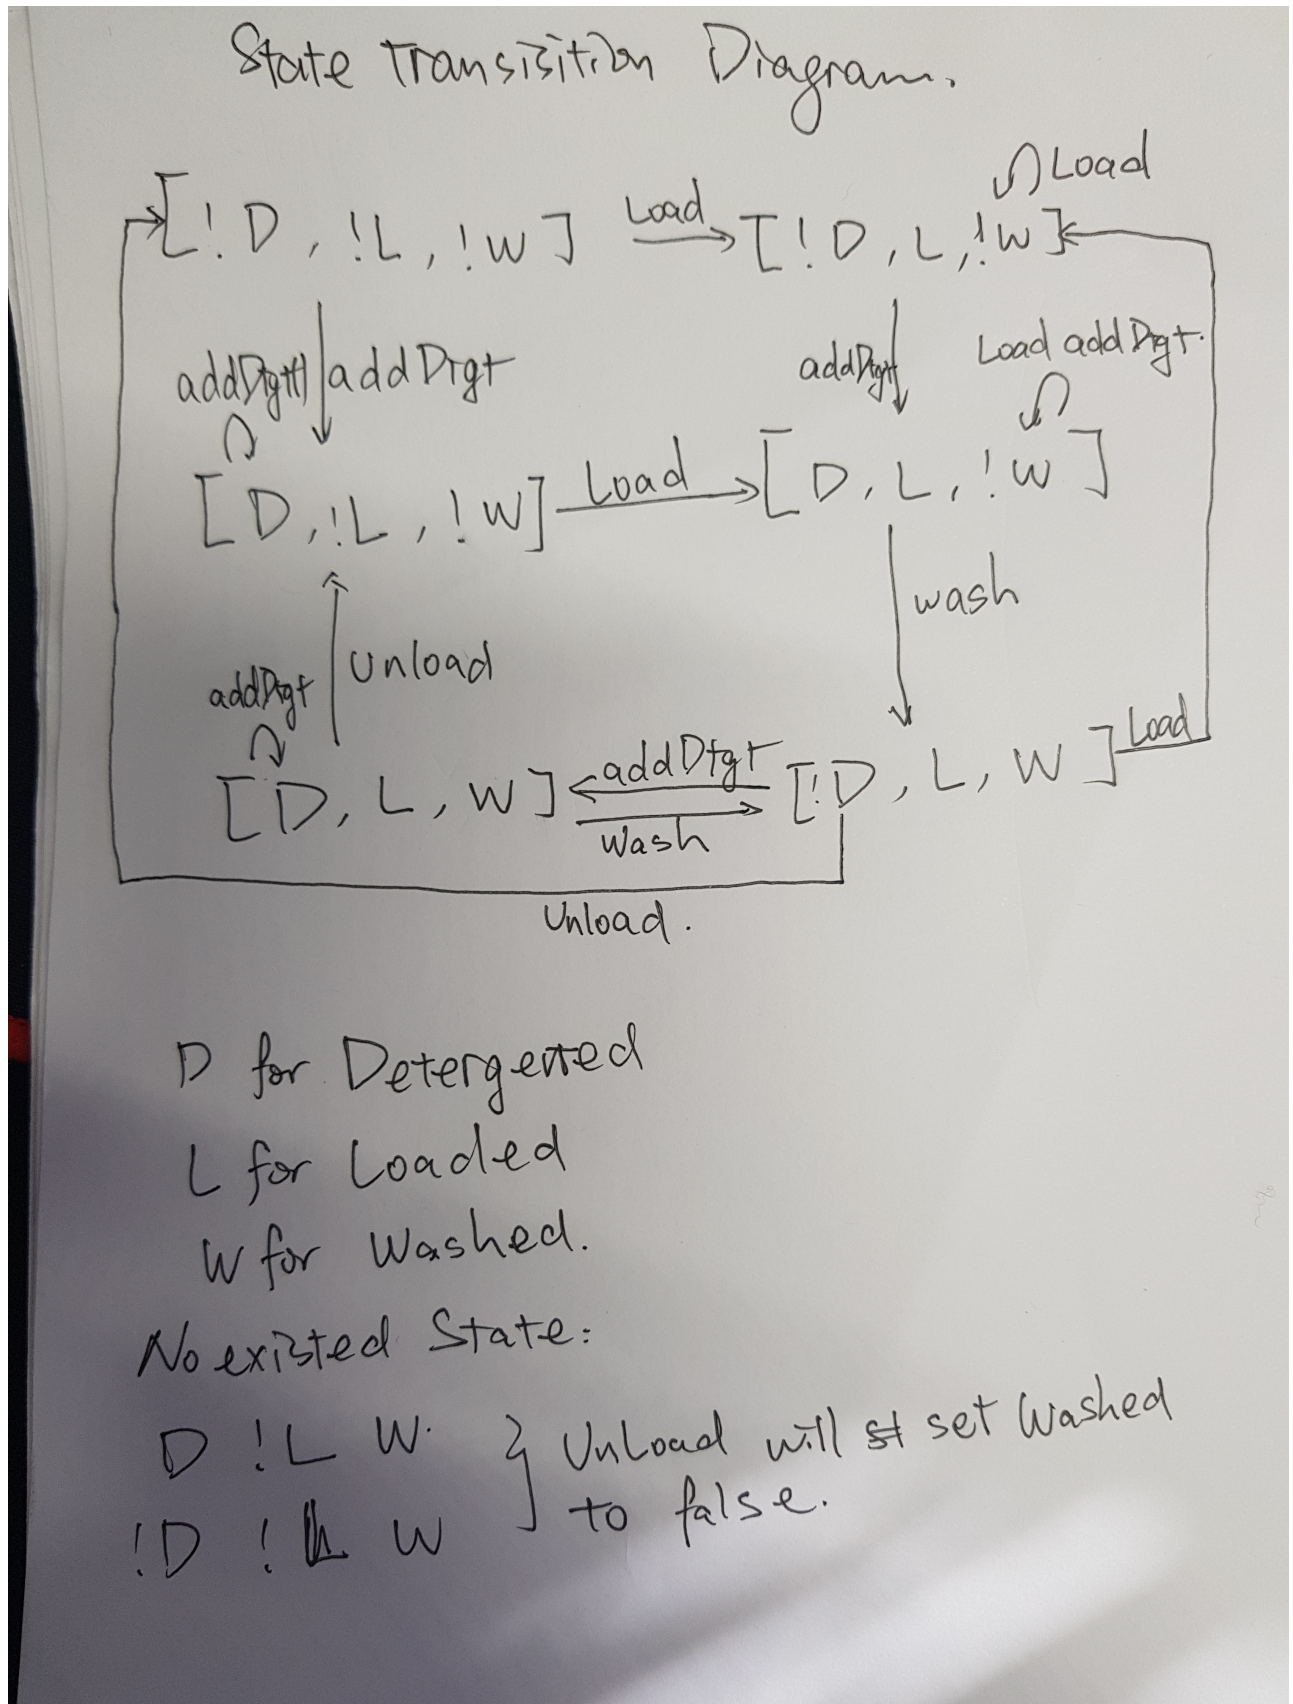 State Transisition Diagram.
Load
[!D, !L, !W] Load [!D, L, !W]
addDtgt) addDrgt addDtgt Load addDrgt.
[D, !L, !W] Load [D, L, !W]
wash
Unload
addDtgt
[D, L, W] addDtgt [!D, L, W] Load
Wash
Unload.
D for Detergented
L for Loaded
W for Washed.
No existed State:
D !L W. } UnLoad will set Washed
!D !L W to false.